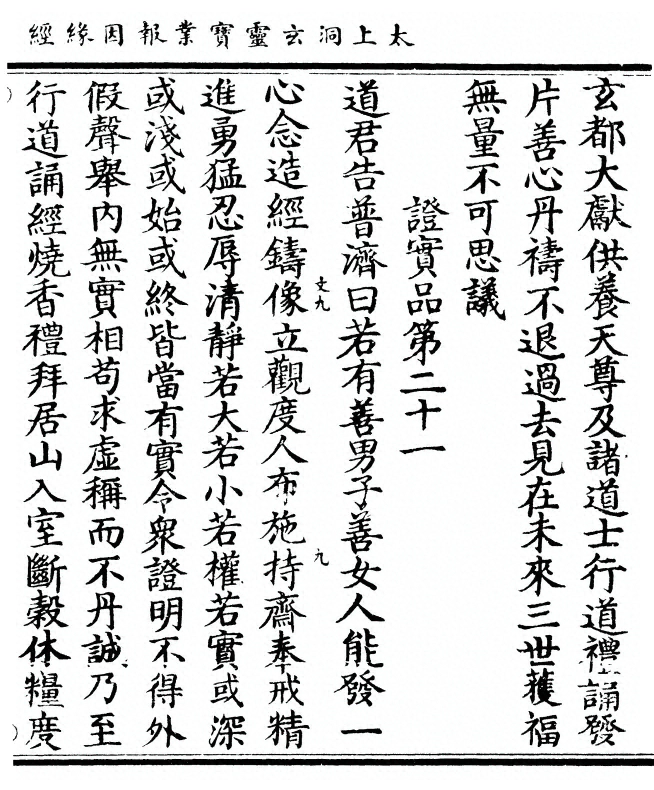 太上洞玄靈寶業報因緣經
玄都大獻供養天尊及諸道士行道禮誦發
片善心丹禱不退過去見在未來三世獲福
無量不可思議
證實品第二十一
道君告普濟曰若有善男子善女人能發一
文九
九
心念造經鑄像立觀度人布施持齋奉戒精
進勇猛忍辱清靜若大若小若權若實或深
或淺或始或終皆當有實令衆證明不得外
假聲舉內無實相苟求虛稱而不丹誠乃至
行道誦經燒香禮拜居山入室斷穀休糧度